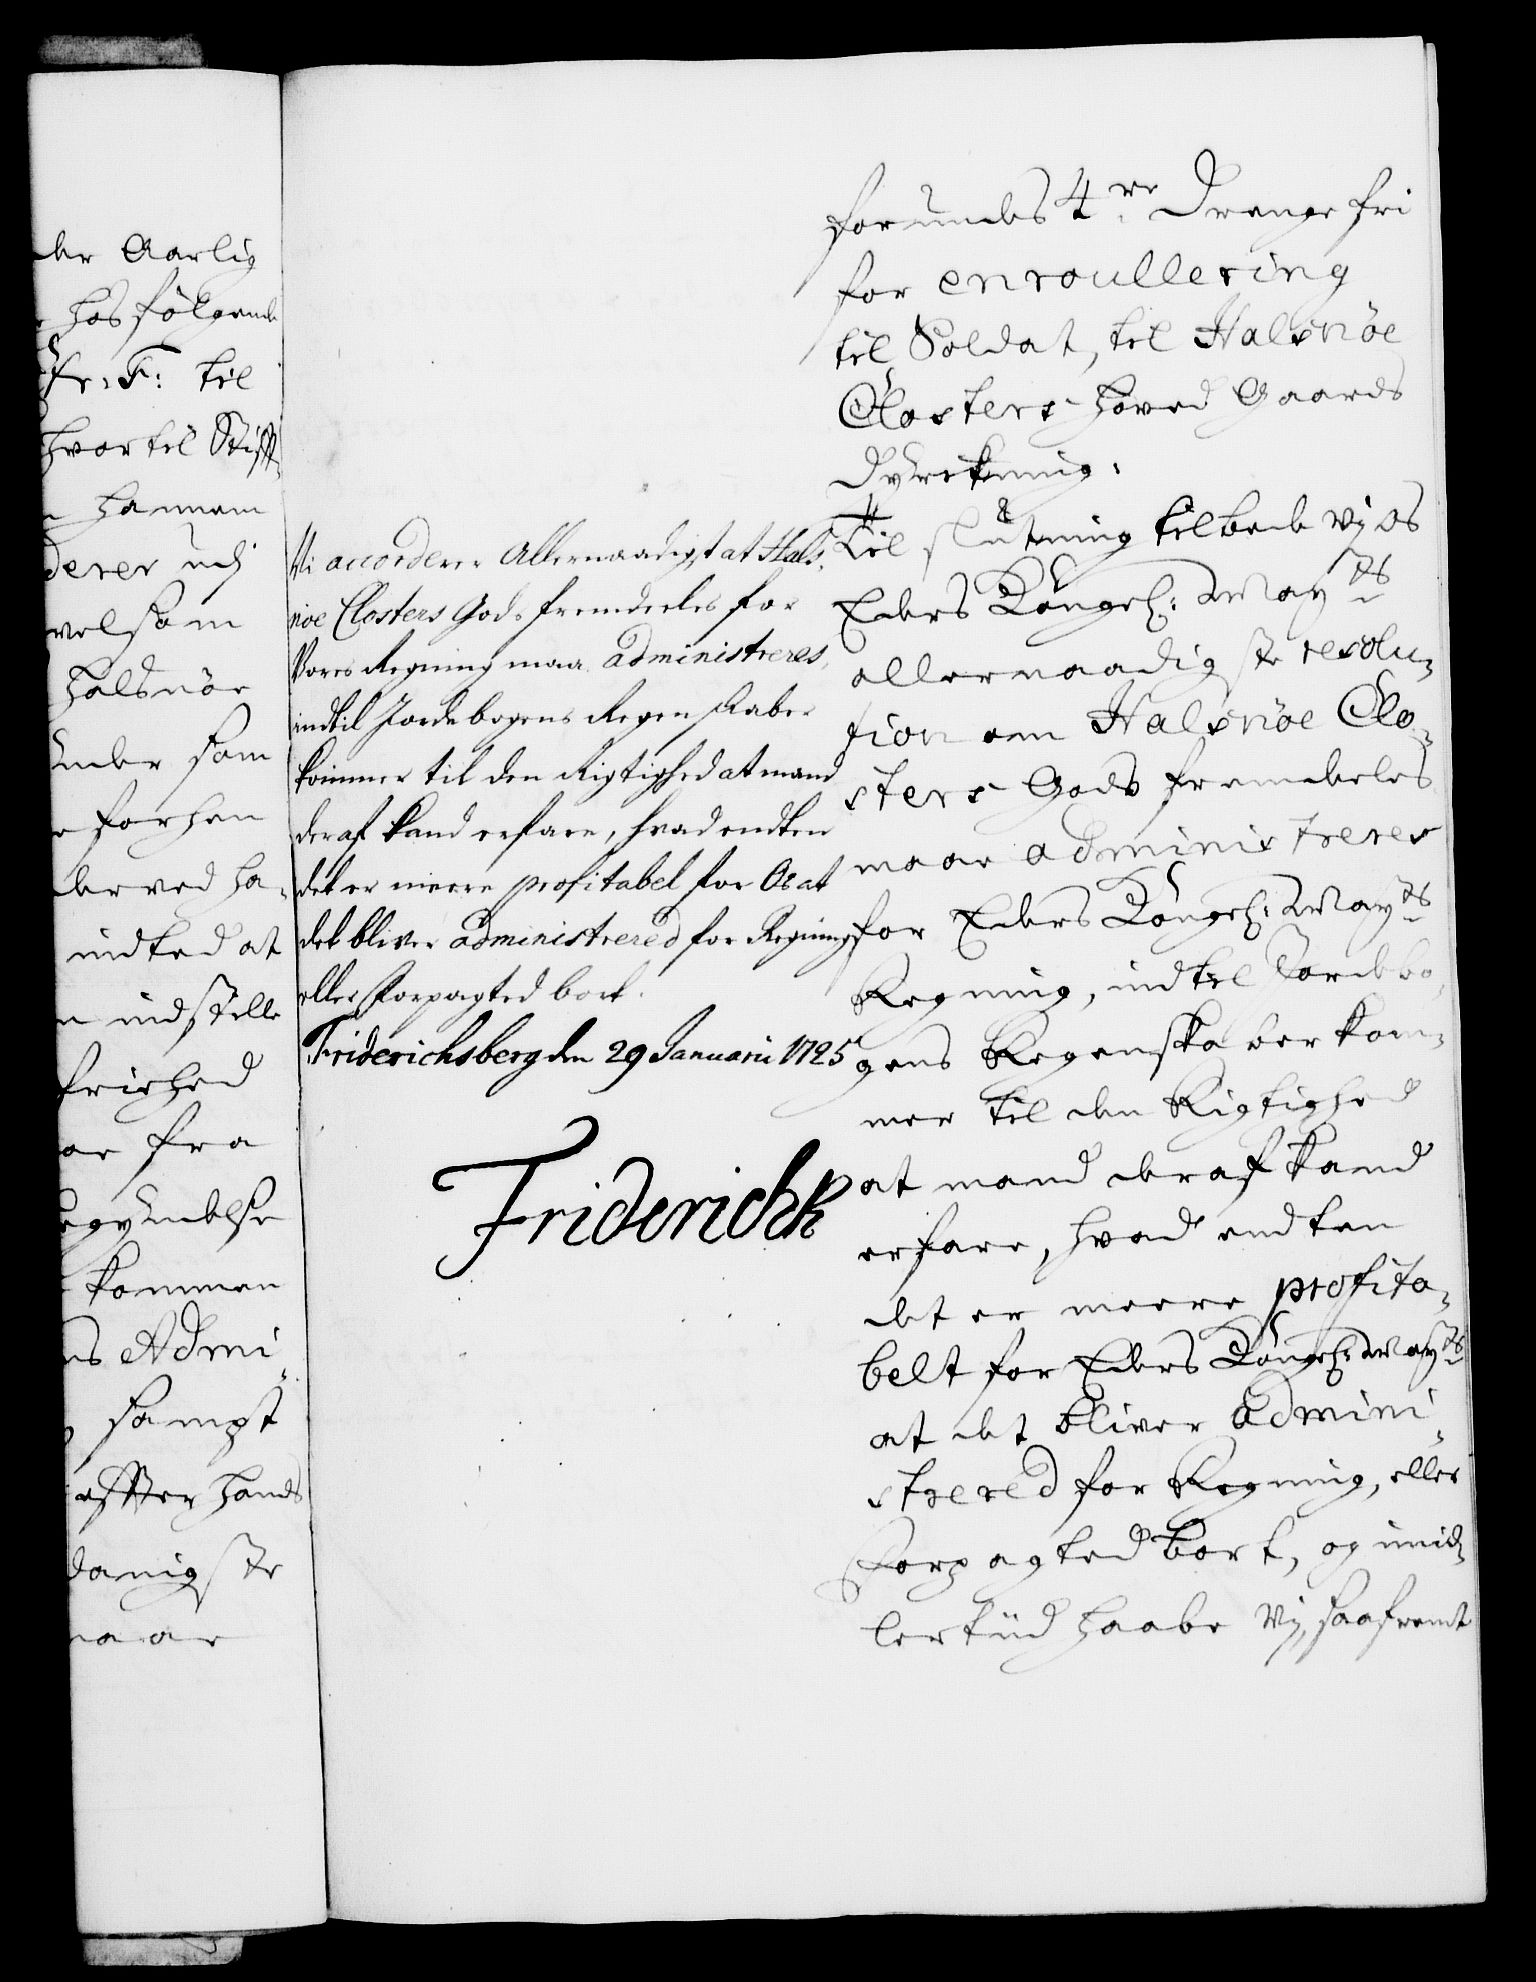 der Aarlig
hos følgende
Fr: F: til
hvortil Stift
hannem
derer udj
velsom
Halsnöe
under som
forhen
derved ha-
indted at
indstille
friehed
ar fra
begyndelse
kommen
ns Admi-
sampt
effter hands
danigste
maae
Vi accorderer Allernaadigst at Hals-
nöe Closters Gods fremdeeles for
Vores Regning maa administreres,
indtil Jordebogens Regenskaber
kommer til den Rigtighed at mand
deraf kand erfare, hvad endten
det er meere profitabel for Os at
det bliver administrered for Regning
eller forpagted bort.
Friderichsberg den 29 Januarii 1725
Friderich R
forundes 4re Drenge fri
for enroullering
til Soldat, til Halsnöe
Closters Hoved Gaards
Dyrckning.
Til slutning tilbede vj os
Eders Kongel: Mayts
allernaadigste resolu-
tion om Halsnöe Clo-
sters Gods fremdeles
maae administreres
for Eders Kongel: Mayts
Regning, indtil Jordebo-
gens Regenskaber kom-
mer til den Rigtighed
at mand deraf kand
erfare, hvad endten
det er meere profita-
belt for Eders Kongel: Mayts
at det bliver admini-
strered for Regning, eller
Forpagted bort, og imid-
lertiid haabe vj, saafremt